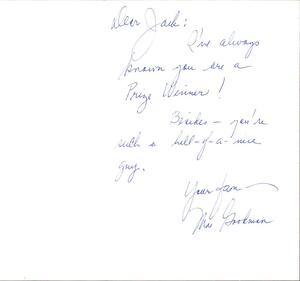 Dear Jack:
I've always
known you are a
Prize Winner!
Besides — you're
such a hell-of-a-nice
guy.
Your fan —
Mae Goodman